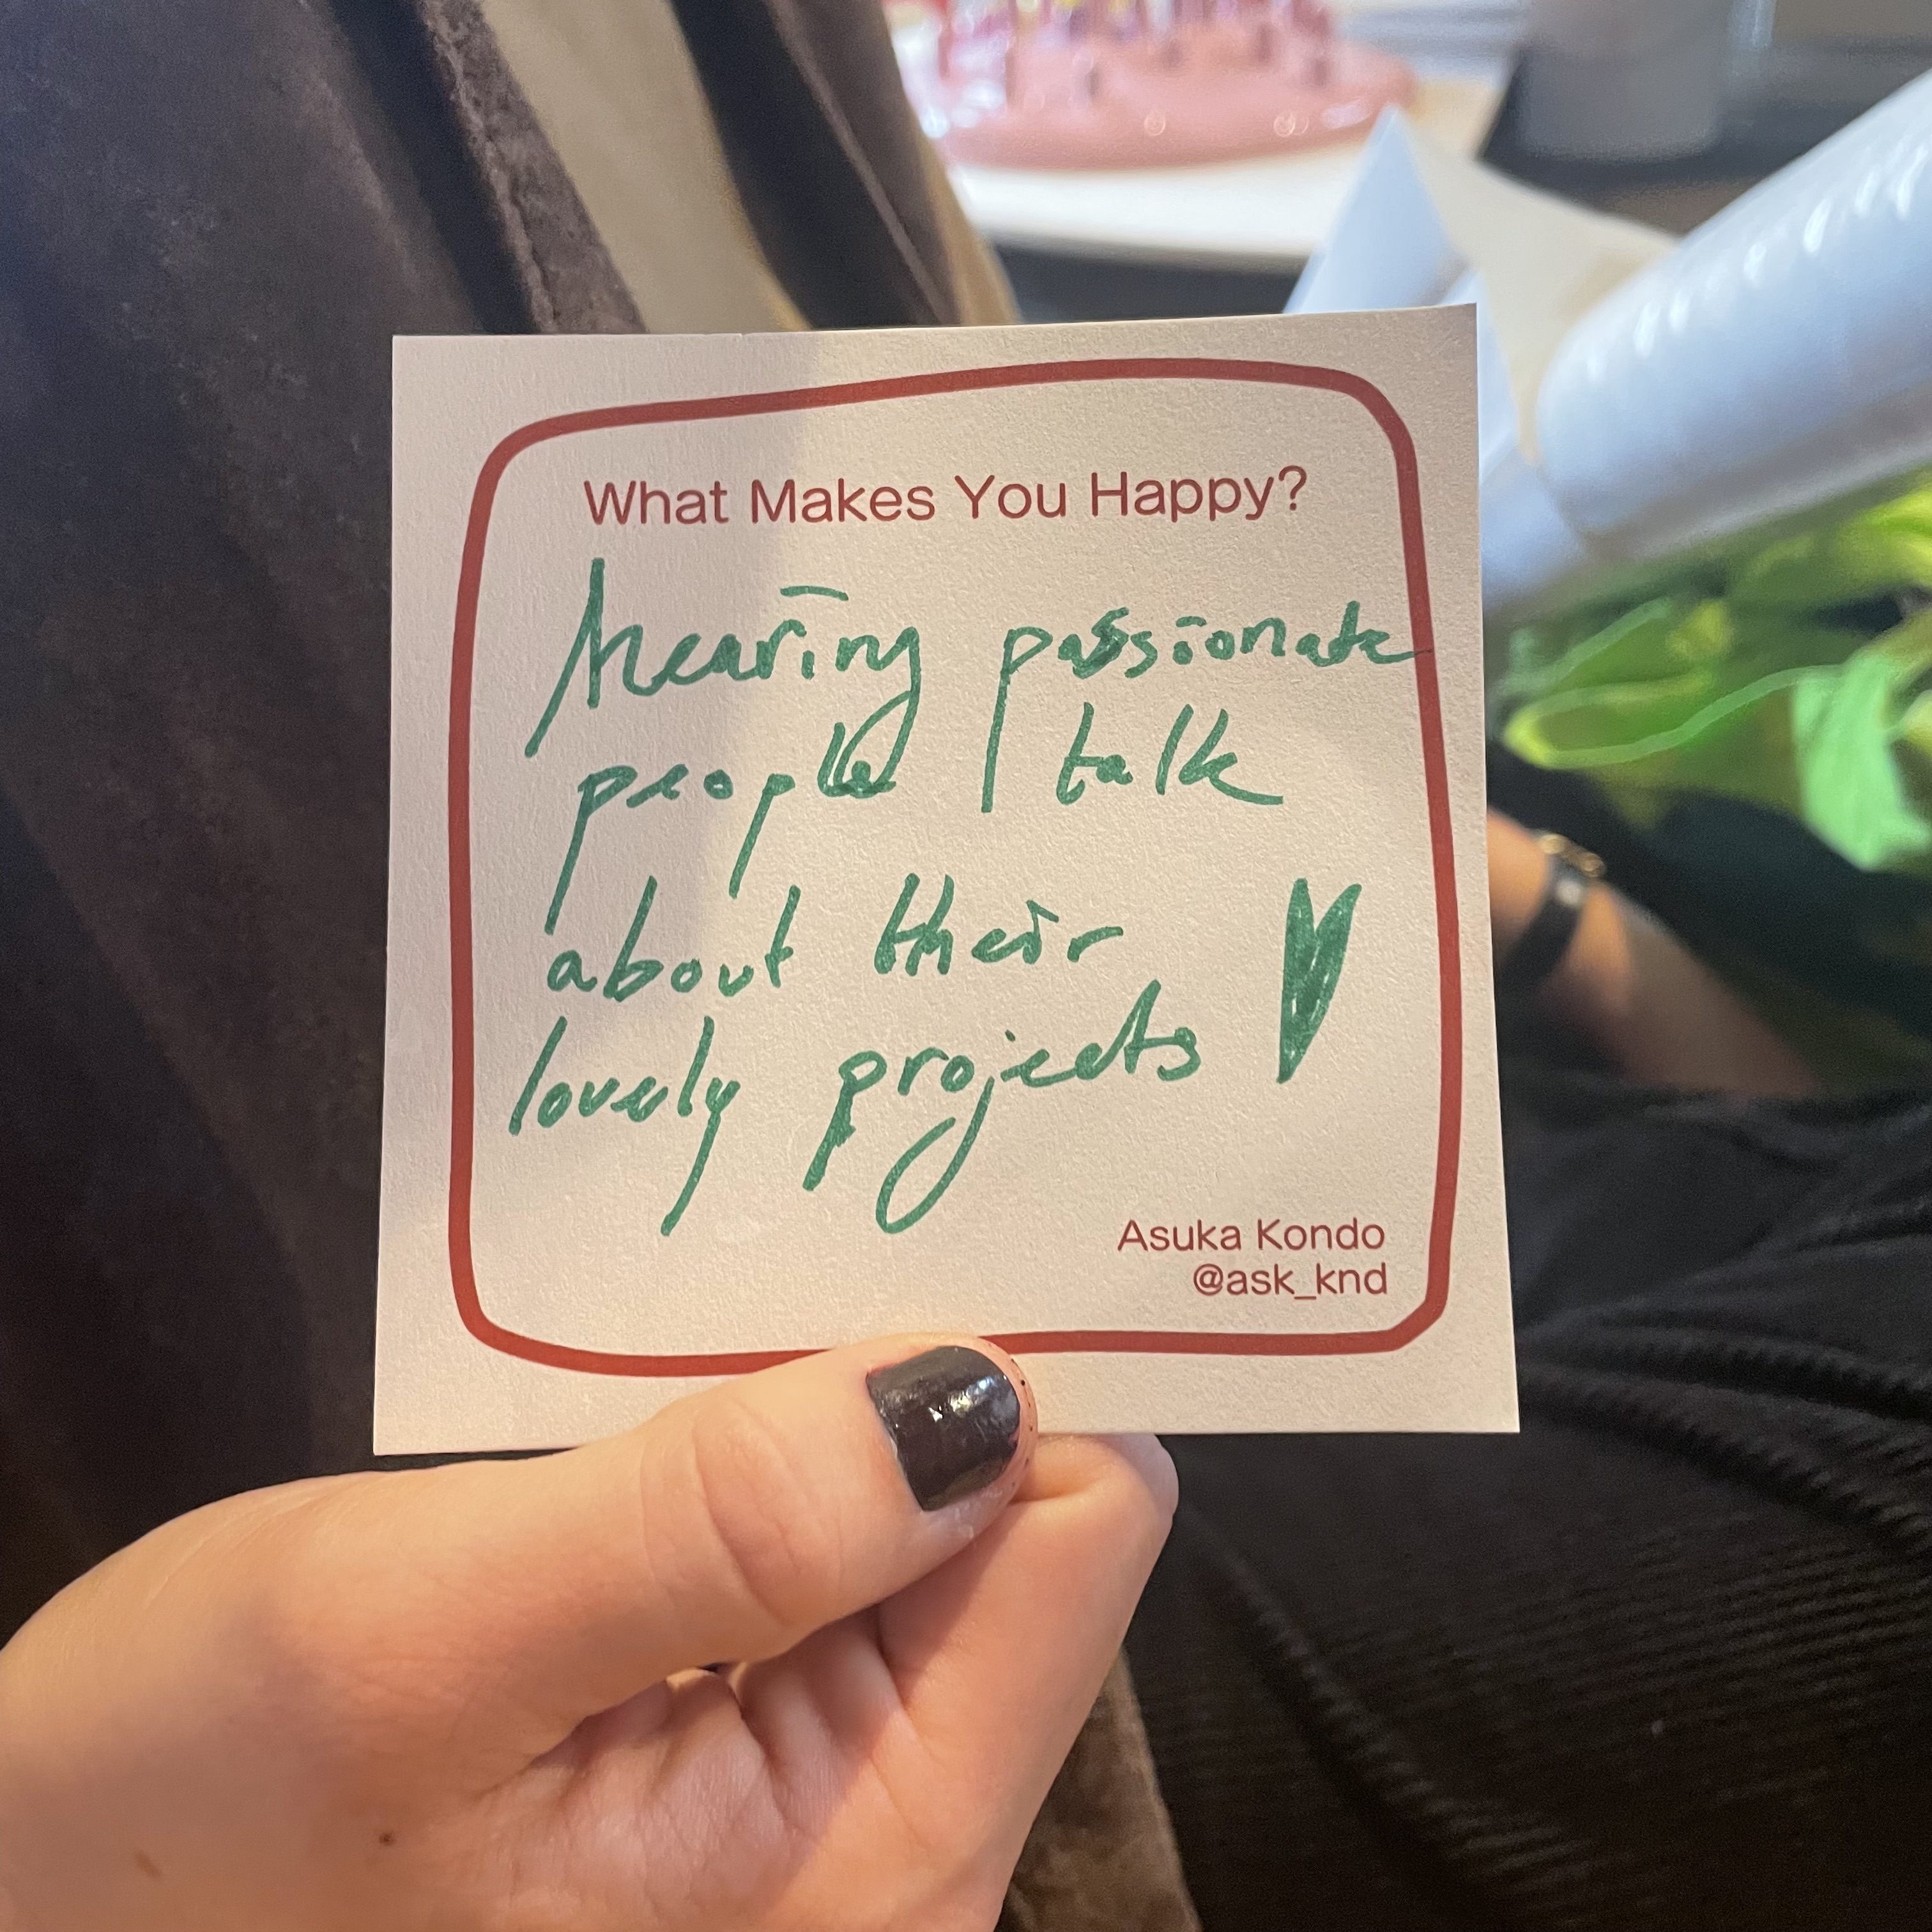 What Makes You Happy?
hearing passionate
people talk
about their
lovely projects
Asuka Kondo
@ask_knd